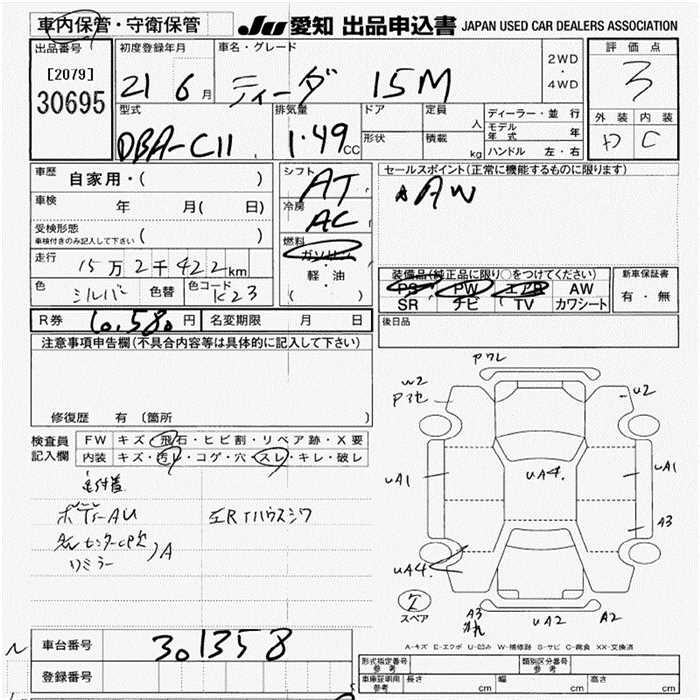 車内保管・守衛保管
JU 愛知 出品申込書 JAPAN USED CAR DEALERS ASSOCIATION
出品番号 初度登録年月 車名・グレード 評価点
[2079] 21 6月 ティーダ 15M 2WD・4WD 3
30695
型式 排気量 ドア 定員 人 ディーラー・並行 外装 内装
DBA-C11 1.49CC 形状 積載 kg モデル年式 年 D C
ハンドル 左・右
車歴 自家用・( )
シフト AT
セールスポイント(正常に機能するものに限ります)
AW
車検 年 月( 日)
冷房 AC
受検形態 車検付きのみ記入して下さい ( )
燃料 ガソリン・軽・油 ( )
走行 15万2千422km
装備品(純正品に限り○をつけてください) 新車保証書
PS PW エアB AW 有・無
SR ナビ TV カワシート
色 シルバー 色替 色コード K23
R券 10,580円 名変期限 月 日
後日品
注意事項申告欄(不具合内容等は具体的に記入して下さい)
修復歴 有 〔箇所 〕
検査員記入欄 FW キズ・飛石・ヒビ割・リペア跡・X要
内装 キズ・汚レ・コゲ・穴・スレ・キレ・破レ
ボデーAU
ワレ
W2 U2
UA1 UA4. UA1
A3
UA4.
スペア
A3 UA2 A2
A-キズ E-エクボ U-凹み W-補修跡 S-サビ C-腐食 XX-交換済
車台番号 301358
登録番号
形式指定番号 参考 類別区分番号 参考
車庫証明用 参考 長さ cm 幅 cm 高さ cm